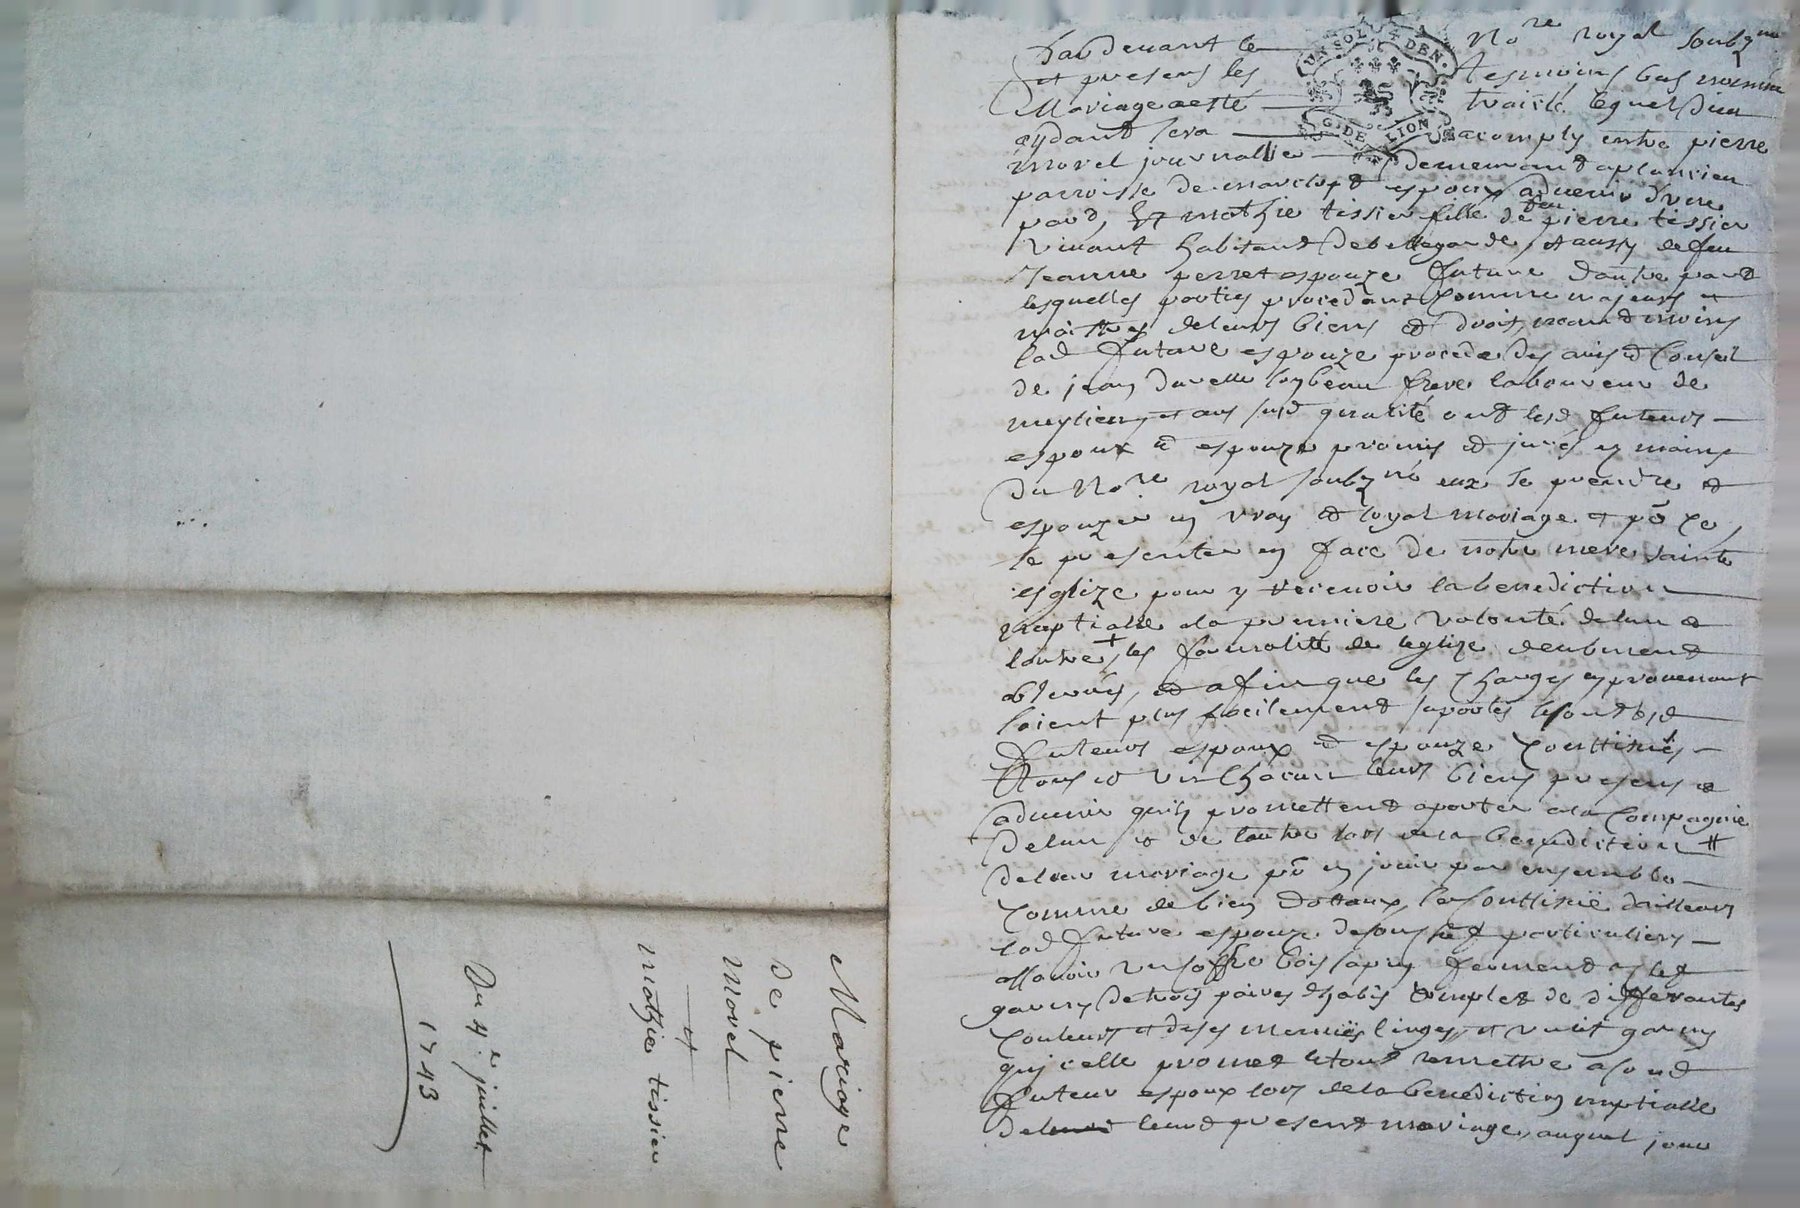 Mariage
de pierre
morel
et
mathie tissier
Du 4e juillet
1743
UN SOL 4 DEN.
G. DE LION
Pardevant le Nore royal soubzne
et presens les tesmoins bas nommé
Mariage a esté traitté lequel Dieu
aydant sera acomply entre pierre
morel journallie demeurant a plancieu
parroisse de marclopt espoux advenir d'vne
part, Et mathie tissier fille de feu pierre tissier
vivant habitant de bellegarde, et aussy de feu
Jeanne perret espouze future dautre part
lesquelles parties procedant comme majeurs et
maistres de leurs biens et droits, neantmoins
lad future espouze procede des avis et Conseil
de jean Duvelle son beau frere laboureur de
meylieu, et aus susd qualité ont lesd futeurs
espoux et espouze promis et jurés es mains
du Nore royal soubzné eux se prendre et
espouzer en vray et loyal mariage et po ce,
se presenter en face de notre mere sainte
esglize pour y recevoir la benediction
nuptialle a la premiere volonté de lun et
lautre + les formalitté de leglize deubment
observés, et afin que les charges en provenant
soient plus facilement suportés se sont lesd
futeurs espoux et espouze Conttitués
tous et vn chacun leurs biens presens et
advenir quils promettent aporter a la compagnie
de lun et de lautre lors de la benediction #
de leur mariage po en jouir par ensemble
comme de bien dottaux, se conttitüe dailleurs
lad future espouze de son chef particuliers
assavoir vn coffre bois sapin fermant a clef
garny de trois paires dhabis complet de differantes
couleurs et de ses menues linges, et vn lit garny
qu'icelle promet le tout remettre a sond
futeur espoux lors de la benediction nuptialle
de leurd present mariage, auquel jour